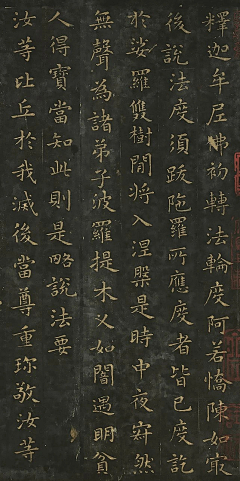 釋迦牟尼佛初轉法輪度阿若憍陳如㝡
後說法度須跋陁羅所應度者皆已度訖
於娑羅雙樹間將入涅槃是時中夜寂然
無聲為諸弟子波羅提木叉如闇遇明貧
人得寶當知此則是略說法要
汝等比丘於我滅後當尊重珍敬汝等